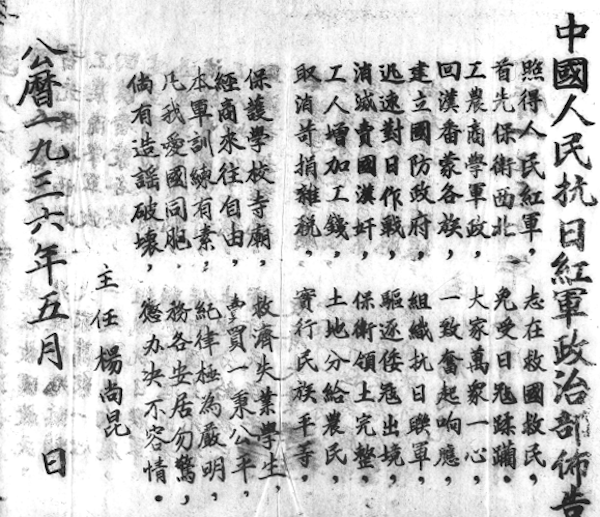 中國人民抗日紅軍政治部佈告
照得人民紅軍，志在救國救民，
首先保衛西北，免受日寇蹂躪。
工農商學軍政，大家萬衆一心，
回漢番蒙各族，一致奮起响應，
建立國防政府，組織抗日聯軍，
迅速對日作戰，驅逐倭寇出境，
消滅賣國漢奸，保衛領土完整，
工人增加工錢，土地分給農民，
取消苛捐雜稅，實行民族平等。
保護學校寺廟，救濟失業學生，
經商來往自由，賣買一秉公平，
本軍訓練有素，紀律極為嚴明，
凡我愛國同胞，務各安居勿驚，
倘有造謠破壞，懲办决不容情。
主任 楊尚昆
公曆一九三六年五月 日